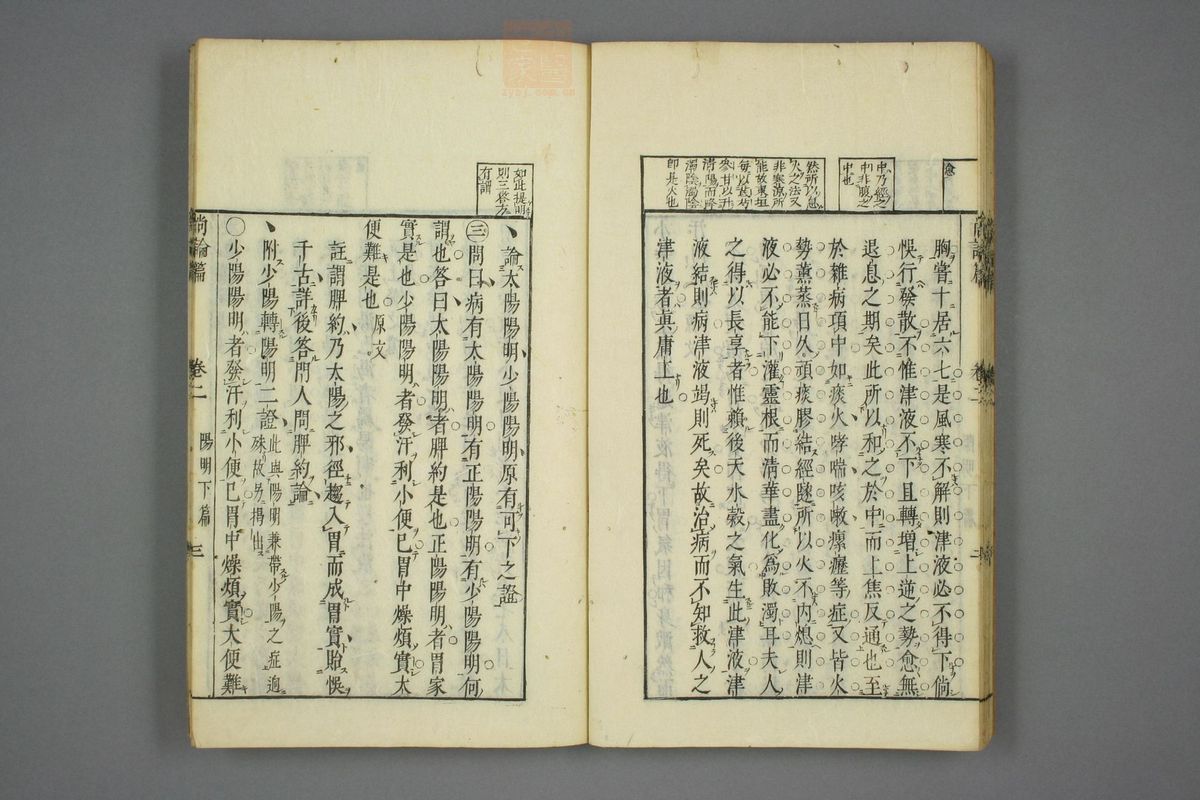 愈
中乃經之
中非腹之
中也
然所以熄
火之法又
非寒涼所
能故東垣
每以甚芍
參甘以升
清陽而降
濁陰濁陰
即是火也
胸嘗十居六七是風寒不解則津液必不得下倘
悞行發散不惟津液不下且轉增上逆之勢愈無
退息之期矣此所以和之於中而上焦反通也至
於雜病項中如痰火哮喘咳嗽瘰癧等症又皆火
勢薰蒸日久頑痰膠結經隧所以火不內熄則津
液必不能下灌靈根而清華盡化為敗濁耳夫人
之得以長享者惟賴後天水穀之氣生此津液津
液結則病津液竭則死矣故治病而不知救人之
津液者真庸工也
如此提明
則三答方
有謂
論太陽陽明少陽陽明原有可下之證
㊂問曰病有太陽陽明有正陽陽明有少陽陽明何
謂也答曰太陽陽明者脾約是也正陽陽明者胃家
實是也少陽陽明者發汗利小便已胃中燥煩實大
便難是也原文
註謂脾約乃太陽之邪徑趨入胃而成胃實貽悞
千古詳後答門人問脾約論
附少陽轉陽明二證此與陽明兼帶少陽之症迥
殊故另揭出
○少陽陽明者發汗利小便已胃中燥煩實大便難
尚論篇
卷二
陽明下篇
三
zysj.com.cn